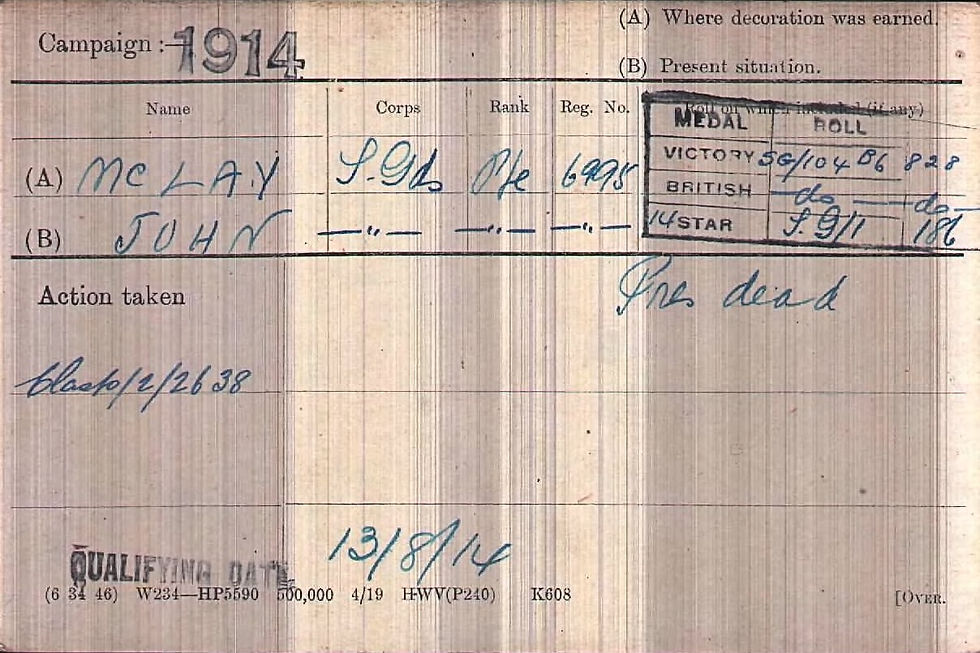 (A) Where decoration was earned.
Campaign :— 1914
(B) Present situation.
Name Corps Rank Reg. No. Roll on which included (if any)
MEDAL ROLL
(A) MC LAY S.Gds Pte 6995 VICTORY SG/104 B6 828
BRITISH —do— —do—
(B) JOHN —"— —"— —"— 14 STAR S.G/1 186
Action taken Pres dead
/2/2638
QUALIFYING DATE 13/8/14
(6 34 46) W234—HP5590 500,000 4/19 HWV(P240) K608 [OVER.